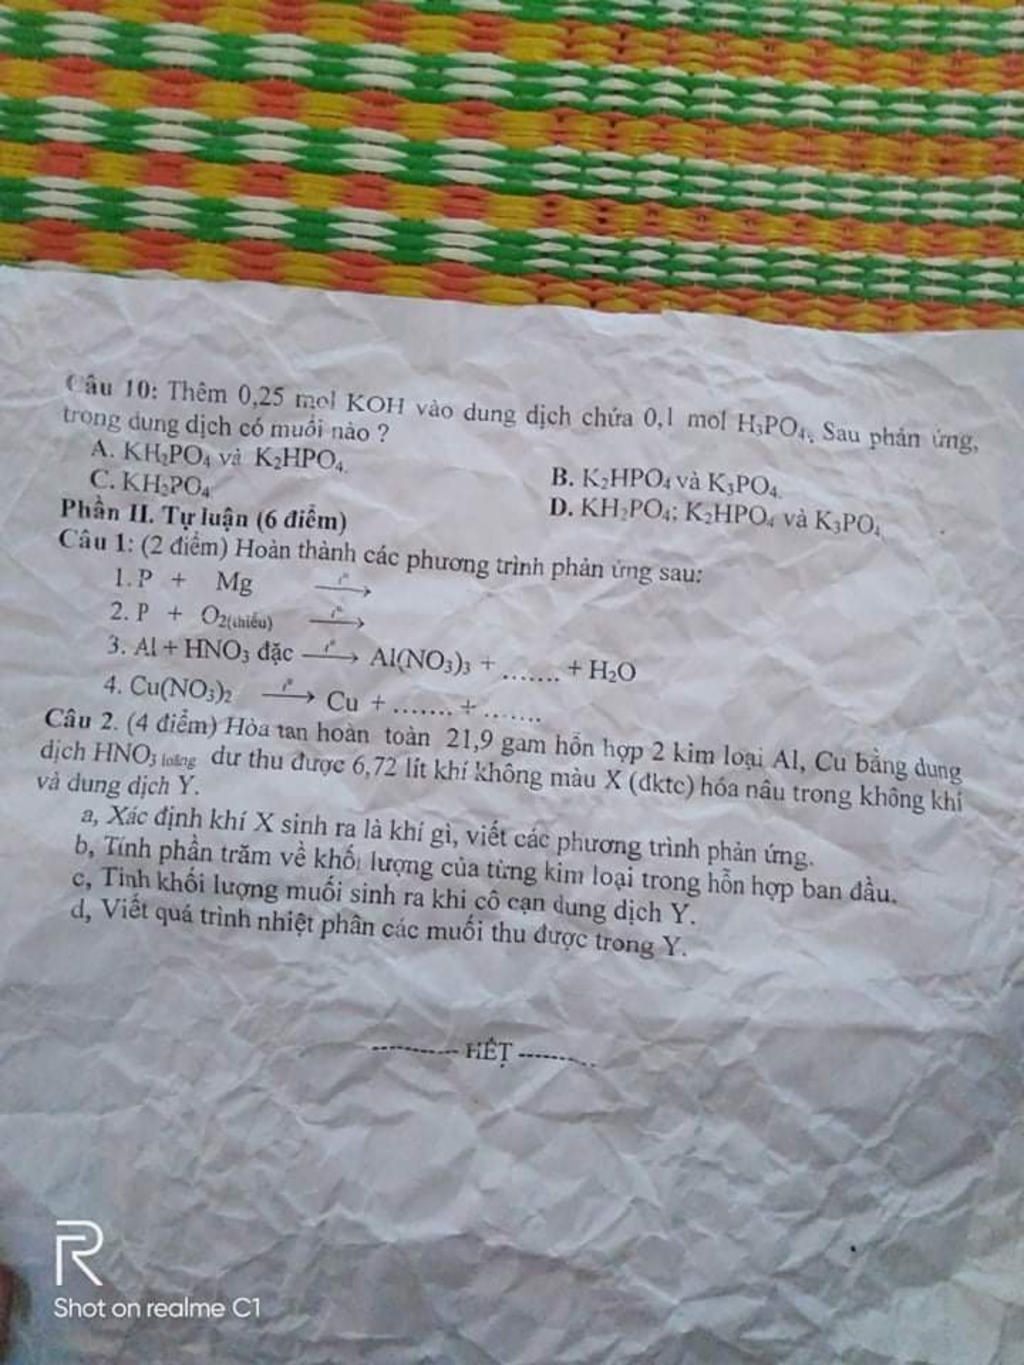 Câu 10: Thêm 0,25 mol KOH vào dung dịch chứa 0,1 mol H₃PO₄. Sau phản ứng,
trong dung dịch có muối nào ?
A. KH₂PO₄ và K₂HPO₄.
B. K₂HPO₄ và K₃PO₄.
C. KH₂PO₄
D. KH₂PO₄; K₂HPO₄ và K₃PO₄.
Phần II. Tự luận (6 điểm)
Câu 1: (2 điểm) Hoàn thành các phương trình phản ứng sau:
1. P + Mg —t°→
2. P + O₂(thiếu) —t°→
3. Al + HNO₃ đặc —t°→ Al(NO₃)₃ + ....... + H₂O
4. Cu(NO₃)₂ —t°→ Cu + ....... + .......
Câu 2. (4 điểm) Hòa tan hoàn toàn 21,9 gam hỗn hợp 2 kim loại Al, Cu bằng dung
dịch HNO₃ loãng dư thu được 6,72 lít khí không màu X (đktc) hóa nâu trong không khí
và dung dịch Y.
a, Xác định khí X sinh ra là khí gì, viết các phương trình phản ứng.
b, Tính phần trăm về khối lượng của từng kim loại trong hỗn hợp ban đầu.
c, Tính khối lượng muối sinh ra khi cô cạn dung dịch Y.
d, Viết quá trình nhiệt phân các muối thu được trong Y.
---------- HẾT ----------
R
Shot on realme C1